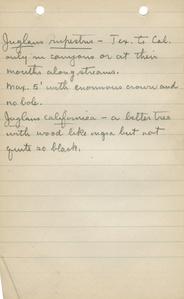 Juglans rupestris - Tex. to Cal.
only in canyons or at their
mouths along streams.
Max. 5' with enormous crown and
no bole.
Juglans californica - a better tree
with wood like nigra but not
quite so black.